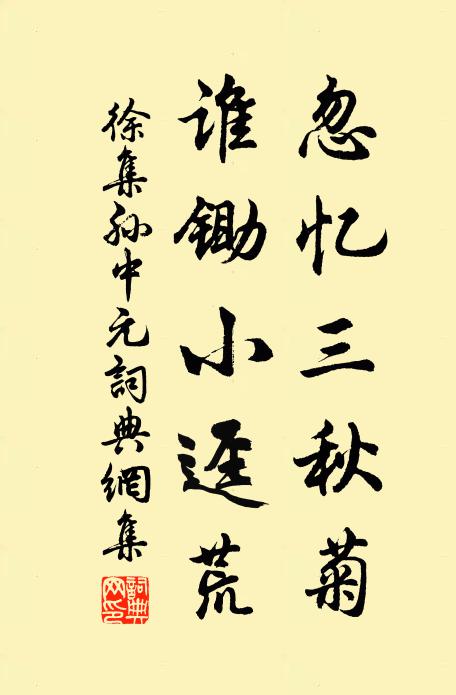 忽忆三秋菊
谁锄小迳荒
徐集孙中元詞典網集
詞典
网印